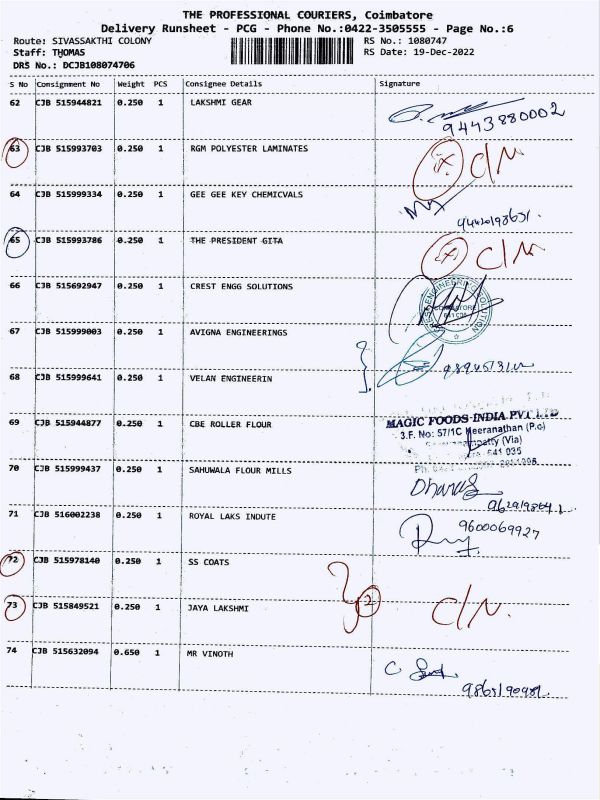 THE PROFESSIONAL COURIERS, Coimbatore
Delivery Runsheet - PCG - Phone No.:0422-3505555 - Page No.:6
Route: SIVASSAKTHI COLONY
RS No.: 1080747
Staff: THOMAS
RS Date: 19-Dec-2022
DRS No.: DCJB108074706
S No Consignment No Weight PCS Consignee Details Signature
62 CJB 515944821 0.250 1 LAKSHMI GEAR
9443880002
63 CJB 515993703 0.250 1 RGM POLYESTER LAMINATES C/N
64 CJB 515999334 0.250 1 GEE GEE KEY CHEMICVALS
65 CJB 515993786 0.250 1 THE PRESIDENT GITA C/N
66 CJB 515692947 0.250 1 CREST ENGG SOLUTIONS
67 CJB 515999003 0.250 1 AVIGNA ENGINEERINGS
68 CJB 515999641 0.250 1 VELAN ENGINEERIN
69 CJB 515944877 0.250 1 CBE ROLLER FLOUR
MAGIC FOODS INDIA PVT LTD
3.F. No: 57/1C Meeranathan (P.o)
(Via)
641 035
70 CJB 515999437 0.250 1 SAHUWALA FLOUR MILLS
71 CJB 516002238 0.250 1 ROYAL LAKS INDUTE
9600069927
72 CJB 515978140 0.250 1 SS COATS
2
73 CJB 515849521 0.250 1 JAYA LAKSHMI C/N.
74 CJB 515632094 0.650 1 MR VINOTH